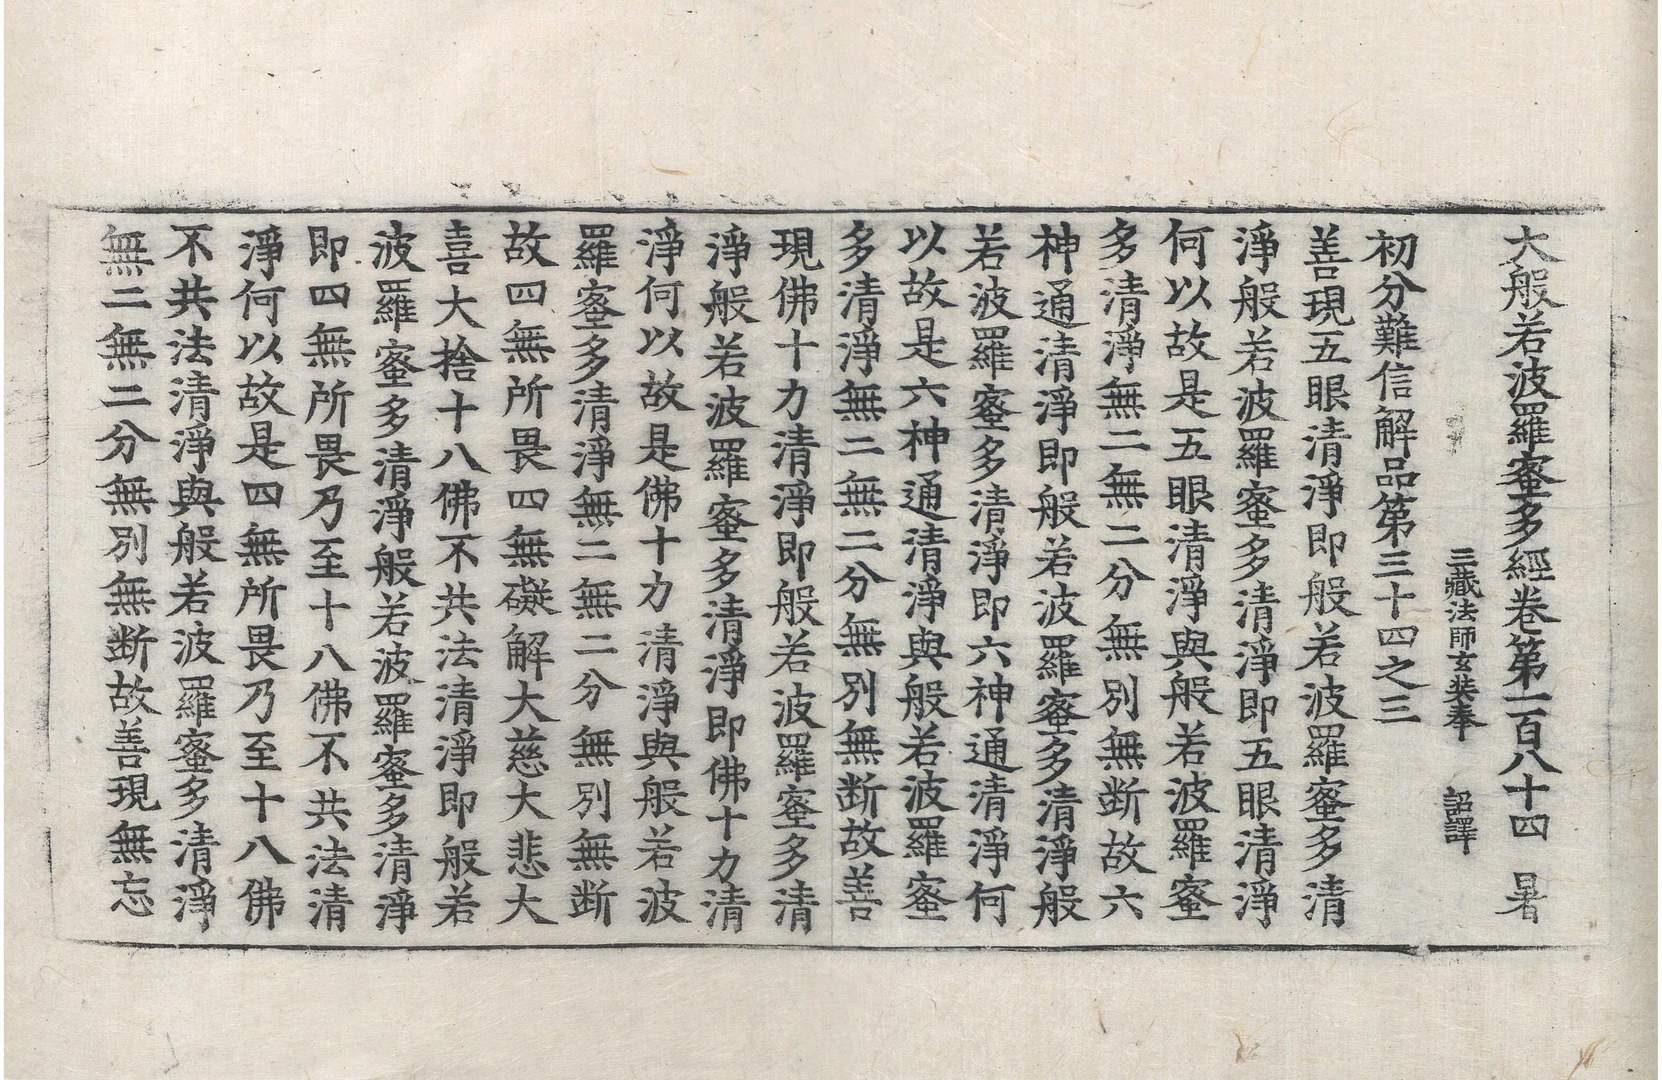 大般若波羅蜜多經卷第一百八十四　暑
三藏法師玄奘奉　詔譯
初分難信解品第三十四之三
善現五眼清淨即般若波羅蜜多清
淨般若波羅蜜多清淨即五眼清淨
何以故是五眼清淨與般若波羅蜜
多清淨無二無二分無別無断故六
神通清淨即般若波羅蜜多清淨般
若波羅蜜多清淨即六神通清淨何
以故是六神通清淨與般若波羅蜜
多清淨無二無二分無別無断故善
現佛十力清淨即般若波羅蜜多清
淨般若波羅蜜多清淨即佛十力清
淨何以故是佛十力清淨與般若波
羅蜜多清淨無二無二分無別無断
故四無所畏四無礙解大慈大悲大
喜大捨十八佛不共法清淨即般若
波羅蜜多清淨般若波羅蜜多清淨
即四無所畏乃至十八佛不共法清
淨何以故是四無所畏乃至十八佛
不共法清淨與般若波羅蜜多清淨
無二無二分無別無断故善現無忘